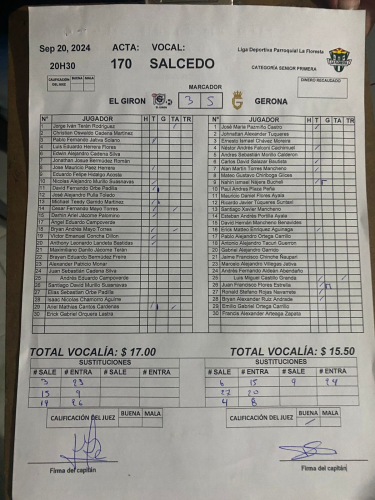 Sep 20, 2024 ACTA: VOCAL: Liga Deportiva Parroquial La Floresta
20H30 170 SALCEDO CATEGORÍA SENIOR PRIMERA
CALIFICACIÓN DEL JUEZ BUENA MALA
MARCADOR
DINERO RECAUDADO
EL GIRON 3 5 GERONA
N° JUGADOR H T G TA TR
1 Jorge Iván Terán Rodríguez
2 Christian Oswaldo Cadena Martínez
3 Pablo Fernando Jativa Solano
4 Luis Eduardo Herrera Flores
5 Edwin Alejandro Cadena Silva
6 Jonathan Josue Bermúdez Román
7 Jose Mauricio Paez Herrera
8 Eduardo Felipe Hidalgo Acosta
9 Nicolas Alejandro Murillo
11 David Fernando Orbe Padilla
12 José Alejandro Peña Toledo
13 Michael Teedy Garrido Martínez
14 Cesar Fernando Mayo Torres
16 Darhin Ariel Jácome Palomino
17 Ángel Eduardo Campoverde
18 Bryan Andrés Mayo Torres
19 Víctor Emanuel Concha Dillon
20 Anthony Leonardo Landeta Bastidas
21 Maximiliano Danilo Jácome Terán
22 Brayan Eduardo Bermúdez Freire
23 Alexander Patricio Monar
24 Juan Sebastián Cadena Silva
Andrés Eduardo Campoverde
26 Santiago David Murillo
27 Elías Sebastián Orbe Padilla
28 Isaac Nicolas Chamorro Aguirre
29 Ariel Mathias Santos Cárdenas
30 Erick Gabriel Orquera Lastra
N° JUGADOR H T G TA TR
1 José María Pazmiño Castro
2 Johnathan Alexander Tuqueres
3 Ernesto Ismael Chávez Moreno
4 Néstor Andrés Falconi Cachimuel
5 Andrés Sebastián Morillo Calderón
6 Carlos David Salazar Bautista
7 Alan Martín Torres Mancheno
8 Mateo Gustavo Chiriboga Gloss
9 Nahin Ismael Nájera Bucheli
10 Paul Andrea Plaza Peña
11 Mauricio Daniel Flores Ayala
12 Ricardo Javier Túqueres Suntaxi
13 Santiago Xavier Mancheno
14 Esteban Andrés Portilla Ayala
15 David Hernán Mancheno Benavides
16 Erick Mateo Enríquez Aguinaga
17 Pablo Alejandro Ortega Carrillo
19 Antonio Alejandro Tacuri Guerrón
20 Gabriel Alejandro Garrido
21 Jaime Francisco Chinche Ñaupari
23 Marcelo Alejandro Villegas Jativa
24 Andrés Fernando Aldean Abendaño
25 Luis Miguel Castillo Granda
26 Juan Francisco Flores Estrella
27 Ronald Stefano Rojas Navarrete
28 Bryan Alexander Ruiz Andrade
29 Emilio Gabriel Ortega Carrillo
30 Franda Alexander Arteaga Zapata
TOTAL VOCALÍA: $ 17.00 TOTAL VOCALÍA: $ 15.50
SUSTITUCIONES SUSTITUCIONES
# SALE # ENTRA # SALE # ENTRA # SALE # ENTRA # SALE # ENTRA
3 23 6 15 9 24
15 9 27 20
14 26 4 8
CALIFICACIÓN DEL JUEZ BUENA MALA CALIFICACIÓN DEL JUEZ BUENA MALA
Firma del capitán Firma del capitán